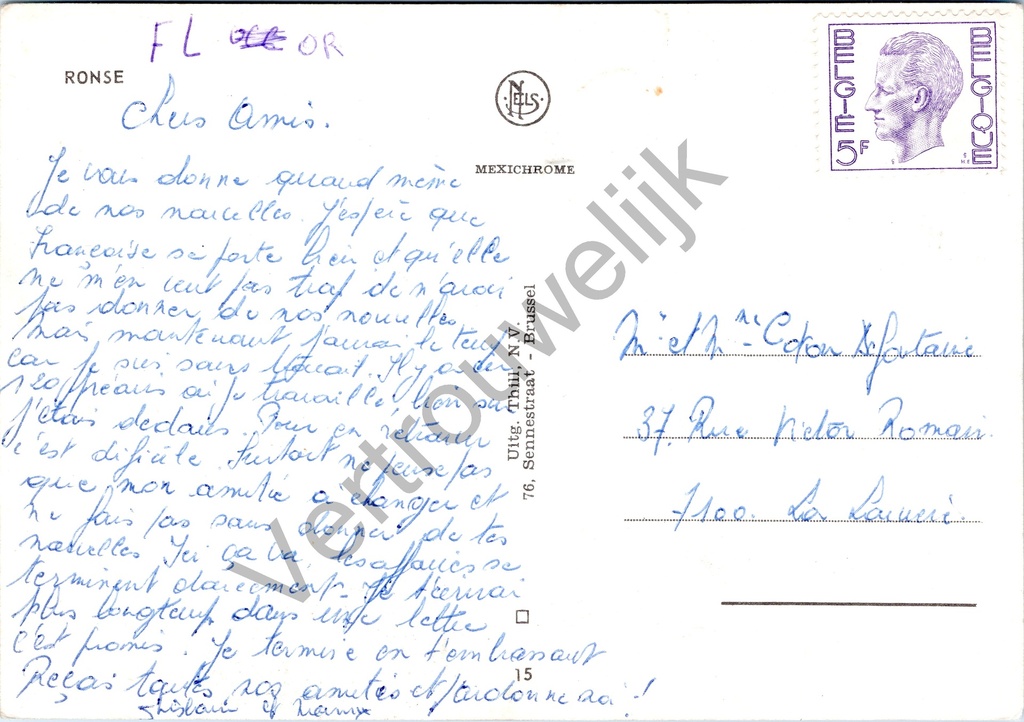 FL OR
RONSE
NELS
MEXICHROME
BELGIE BELGIQUE
5F
Chers Amis.
Je vous donne quand même
de nos nouvelles. J'espère que
Françoise se porte bien et qu'elle
ne m'en veut pas trop de n'avoir
pas donner de nos nouvelles
mais maintenant j'aurai le temps
car je suis sans travail. Il y a
120 où je travaille bien sur
j'étais dedans. Pour en retrouver
c'est dificile. Surtout ne pense pas
que mon amitié a changer et
ne fais pas sans donner de tes
nouvelles Ici ça va les affaires se
terminent doucement. Je t'écrirai
plus longtemps dans une lettre
c'est promis. Je termine en t'embrassant
Reçois toutes nos amitiés et pardonne moi!
Ghislain et
Uitg. Thill, N.V.
76, Sennestraat - Brussel
15
Mr et Mme Coton Defontaine
37 Rue Victor Romain.
7100. La Louvière.
Vertrouwelijk